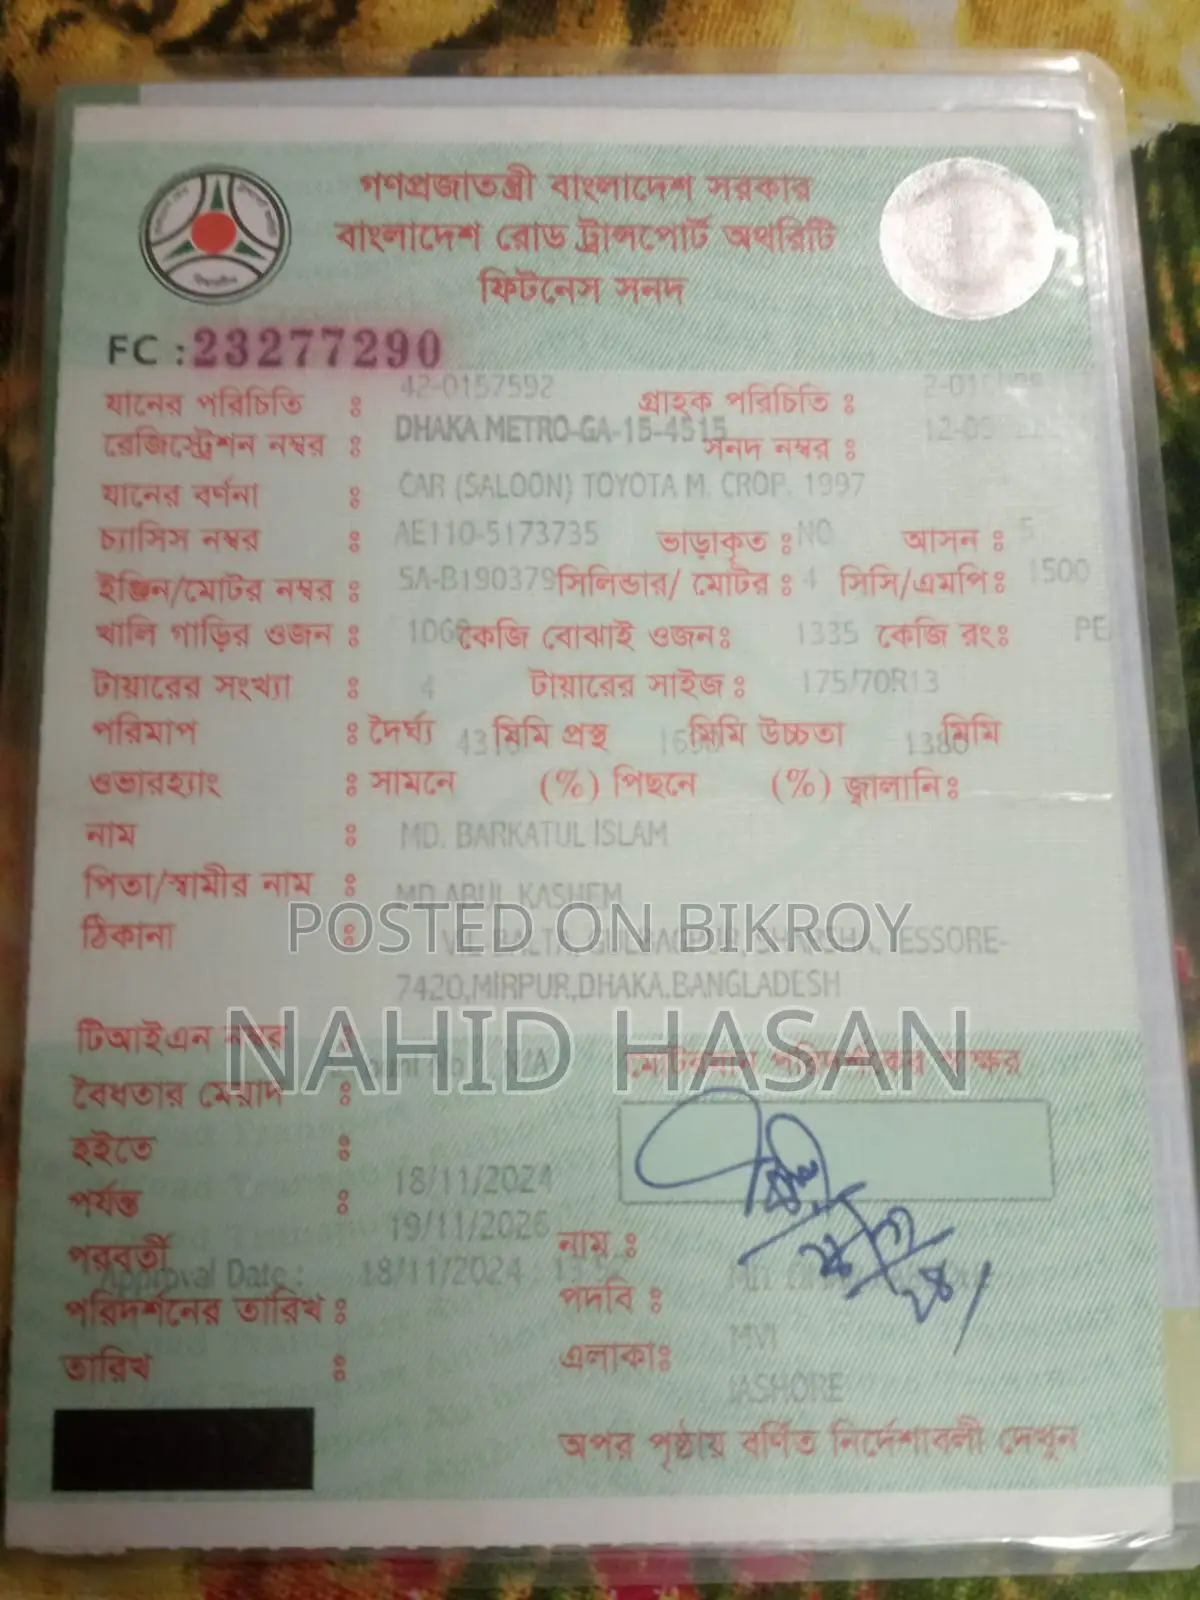 গণপ্রজাতন্ত্রী বাংলাদেশ সরকার
বাংলাদেশ রোড ট্রান্সপোর্ট অথরিটি
ফিটনেস সনদ
FC : 23277290
যানের পরিচিতি : 42-0157592 গ্রাহক পরিচিতি :
রেজিস্ট্রেশন নম্বর : DHAKA METRO-GA-15-4515 সনদ নম্বর :
যানের বর্ণনা : CAR (SALOON) TOYOTA M. CROP. 1997
চ্যাসিস নম্বর : AE110-5173735 ভাড়াকৃত : NO আসন : 5
ইঞ্জিন/মোটর নম্বর : 5A-B190379 সিলিন্ডার/ মোটর : 4 সিসি/এমপি: 1500
খালি গাড়ির ওজন : কেজি বোঝাই ওজন: 1335 কেজি রং: PE
টায়ারের সংখ্যা : 4 টায়ারের সাইজ : 175/70R13
পরিমাপ : দৈর্ঘ্য মিমি প্রস্থ মিমি উচ্চতা 1380 মিমি
ওভারহ্যাং : সামনে (%) পিছনে (%) জ্বালানি:
নাম : MD. BARKATUL ISLAM
পিতা/স্বামীর নাম : MD.ABUL KASHEM
POSTED ON BIKROY
ঠিকানা :
7420,MIRPUR,DHAKA.BANGLADESH
NAHID HASAN
টিআইএন নম্বর : N/A মোটরযান পরিদর্শকের স্বাক্ষর
বৈধতার মেয়াদ :
হইতে : 18/11/2024
পর্যন্ত : 19/11/2026
পরবর্তী নাম :
Approval Date : 18/11/2024
পরিদর্শনের তারিখ : পদবি : MVI
তারিখ : এলাকা: JASHORE
অপর পৃষ্ঠায় বর্ণিত নির্দেশাবলী দেখুন